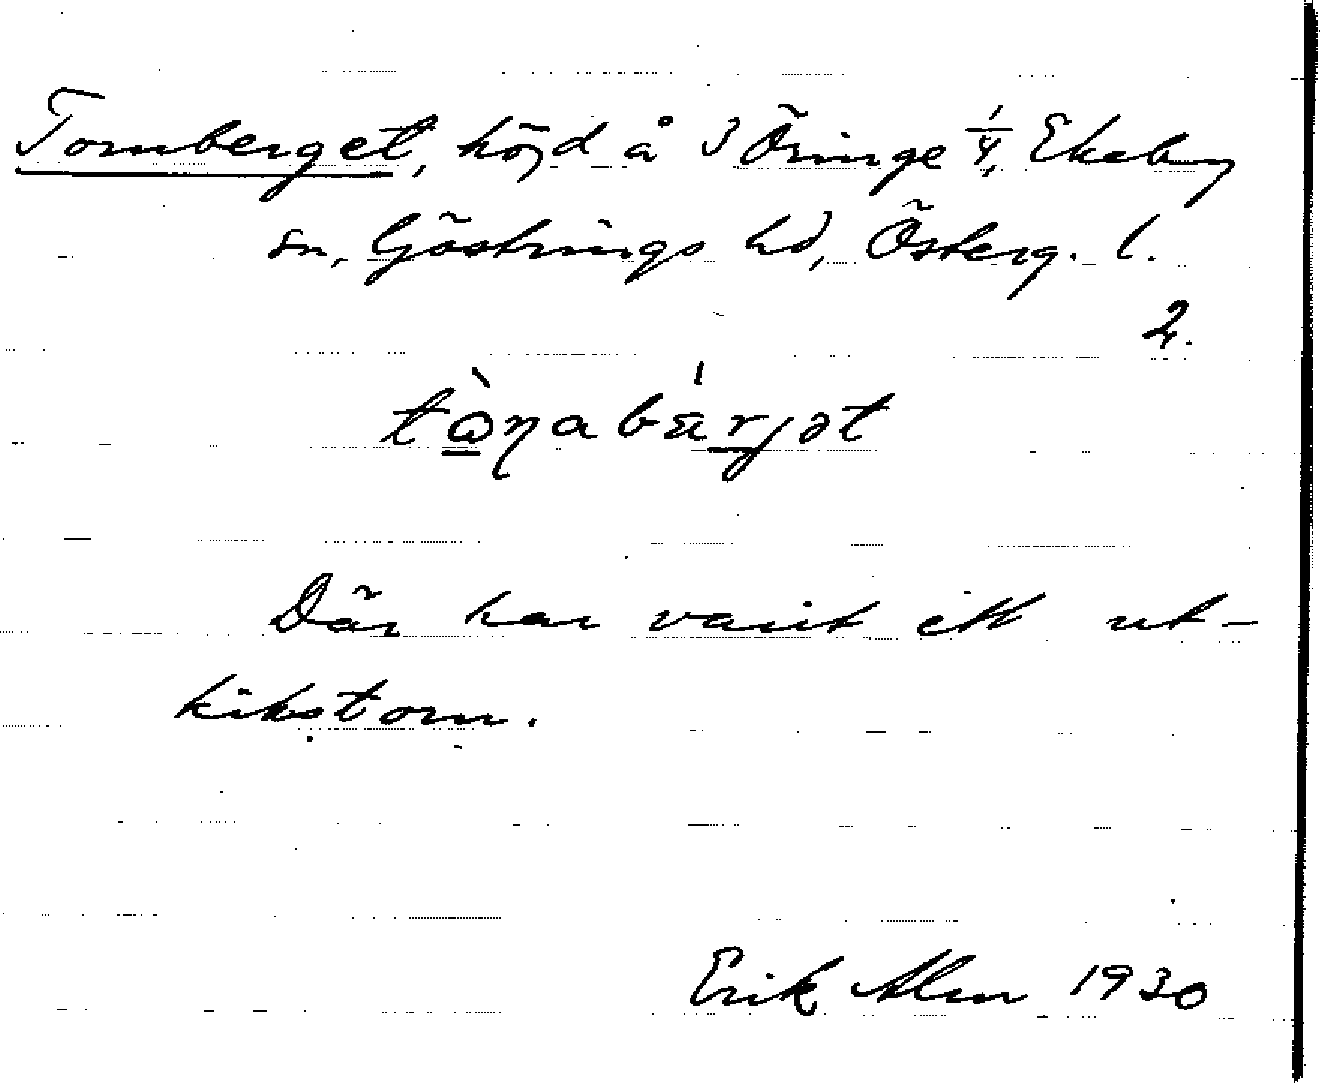 Tornberget, höjd å 3 Öringe 1/4, Ekeby
sn, Göstrings hd, Österg. l.
2.
tὼṇabá̤rjət
Där har varit ett ut-
kikstorn.
Erik Alm 1930